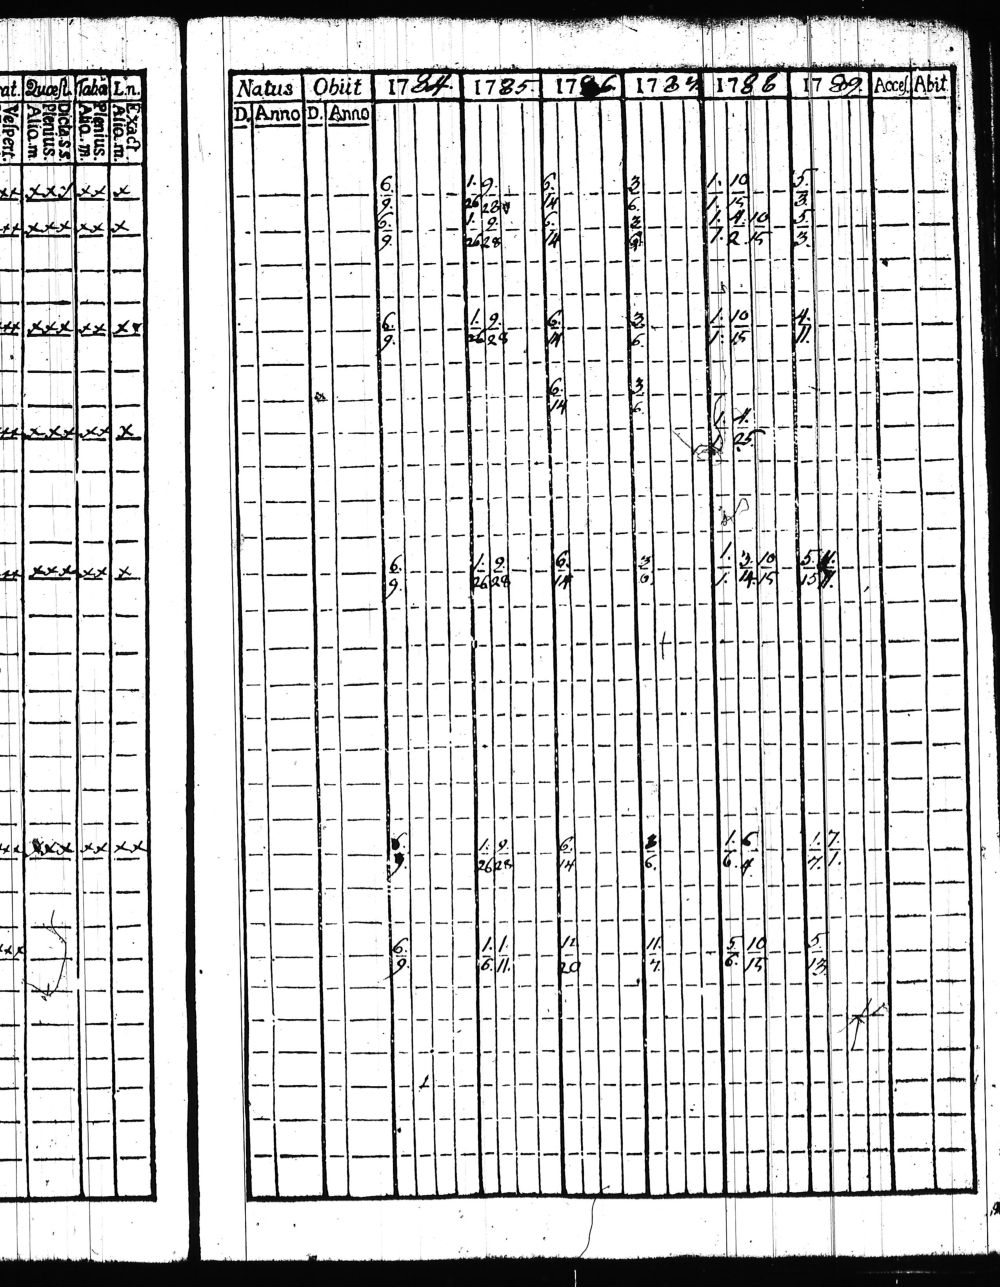 at. Quœst. Taba L.n.
Vespert. Dicta s.s. Plenius. Alio. m. Plenius. Alio. m. Exact. Alio. m.
Natus Obiit 1784. 1785. 1786. 1787. 1788 1789. Acces. Abit.
D. Anno D. Anno
xx xxx xx x 6. 1. 9. 6. 3 1. 10 5.
9. 26 28 14 6. 1. 15 3.
xx xxx xx x 6. 1. 9. 6. 3 1. 4. 10 5
9. 26 28 14 1. 2 15 3.
xxx xxx xx x 6. 1. 9. 6. 3 1. 10 4.
9. 26 28 14 6. 1. 15 11.
6. 3
14 6.
xx xxx xx x 1. 4.
1. 25.
xx xxx xx x 6. 1. 9. 6. 3 1. 3. 10 5.
9. 26 28 14 6 1. 14. 15 15
xx xxx xx xx 6. 1. 9. 6. 3 1. 6 1. 7.
9. 26 28 14 6. 6. 4. 7. 1.
xxx 6. 1. 1. 12. 11. 5. 10 5.
9. 6. 11. 20 7. 6. 15 13.